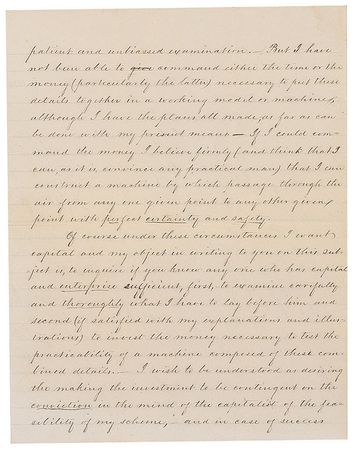 patient and unbiassed examination. — But I have
not been able to give command either the time or the
money (particularly the latter) necessary to put these
details together in a working model or machine,
although I have the plans all made, as far as can
be done with my present means — If I could com-
mand the money I believe firmly (and think that I
can, as it is, convince any practical man) that I can
construct a machine by which passage through the
air from any one given point to any other given
point with perfect certainty and safety.
Of course under these circumstances I want
capital and my object in writing to you on this sub-
ject is, to inquire if you know any one who has capital
and enterprise sufficient, first, to examine carefully
and thoroughly what I have to lay before him and
second (if satisfied with my explanations and illus-
trations) to invest the money necessary to test the
practicability of a machine composed of these com-
bined details. — I wish to be understood as desiring
the making the investment to be contingent on the
conviction in the mind of the capitalist of the fea-
sibility of my scheme, — and in case of success